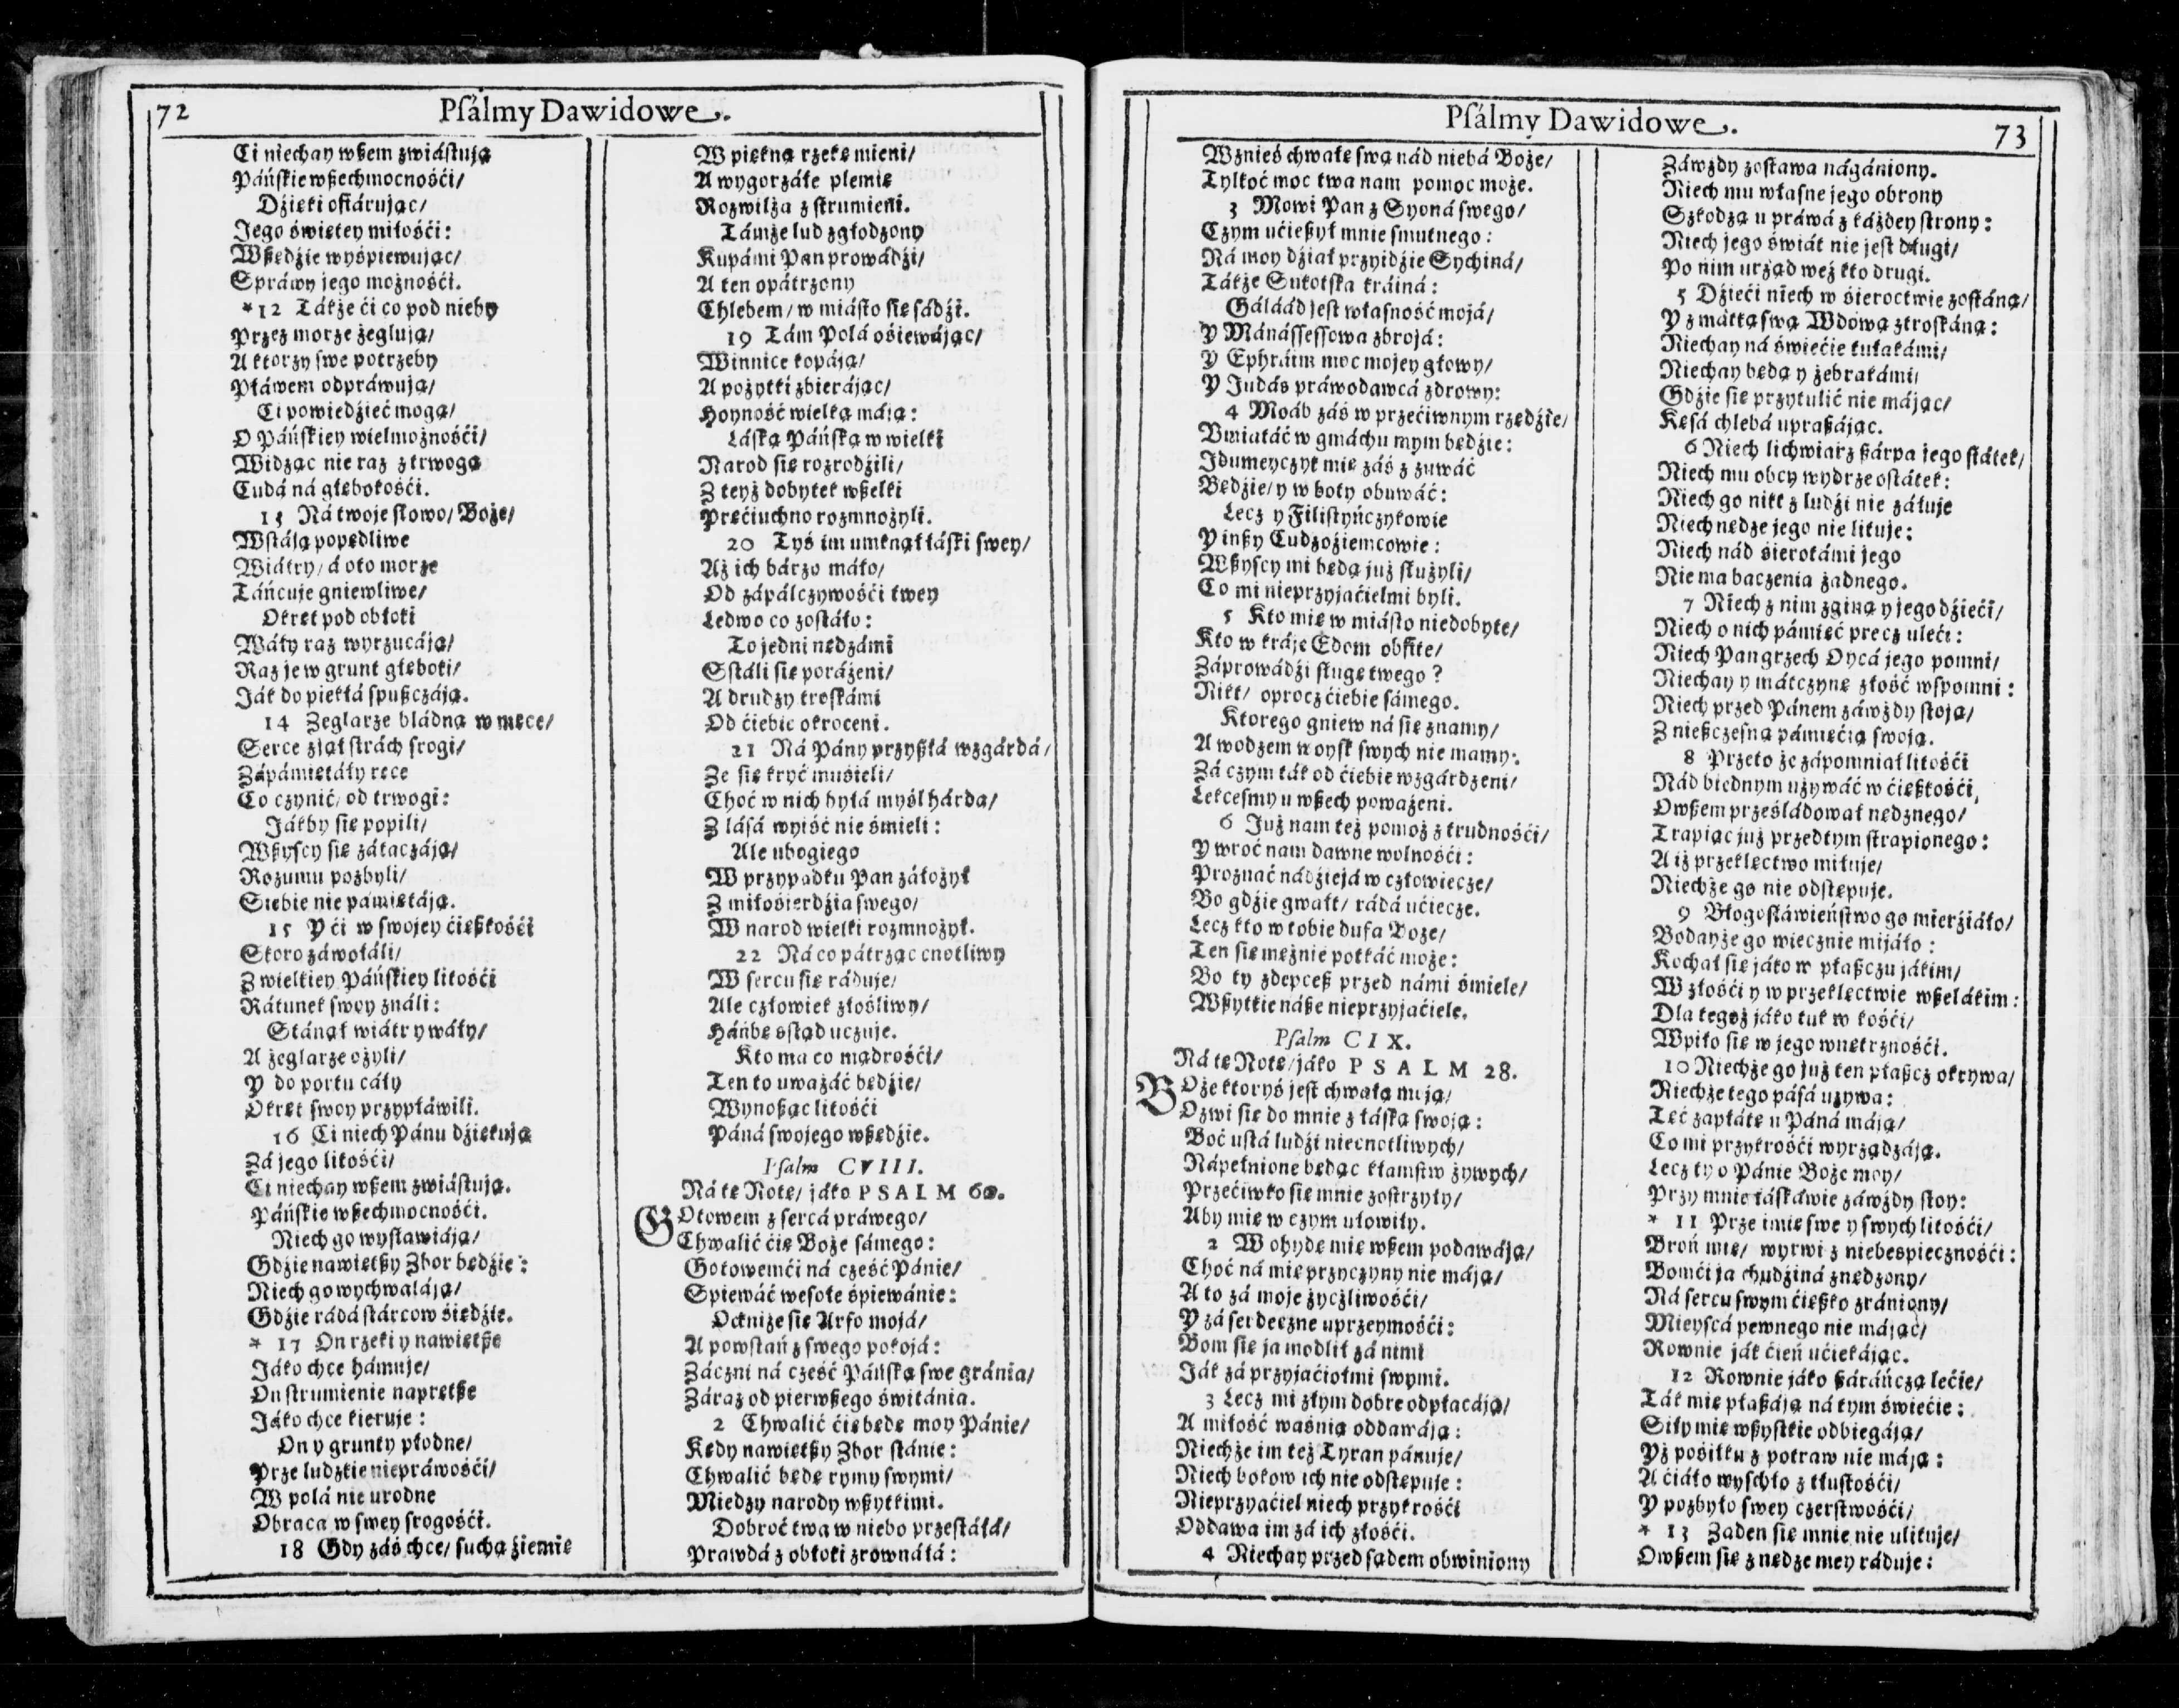 72
Psálmy Dawidowe.
Ci niechay wßem zwiástują
Páńskie wßechmocnośći/
Dźięki ofiárując/
Jego świętey miłośći:
Wßędźie wyśpiewując/
Spráwy jego możnośći.
*12 Tákże ći co pod nieby
Przez morze żeglują/
A ktorzy swe potrzeby
Płáwem odpráwują/
Ci powiedźieć mogą/
O Páńskiey wielmożnośći/
Widząc nie raz z trwogą
Cudá ná głębokośći.
13 Ná twoje słowo/ Boże/
Wstáją popędliwe
Wiátry/ á oto morze
Táńcuje gniewliwe/
Okręt pod obłoki
Wáły raz wyrzucáją/
Raz je w grunt głęboki/
Ják do piekłá spußczáją.
14 Żeglarze błádną w męce/
Serce zjął strách srogi/
Zápámiętáły ręce
Co czynić/ od trwogi:
Jákby się popili/
Wßyscy się zátaczáją/
Rozumu pozbyli/
Siebie nie pámiętáją.
15 Y ći w swojey ćięßkośći
Skoro záwołáli/
Z wielkiey Páńskiey litośći
Rátunek swoy ználi:
Stánął wiátr y wáły/
A żeglarze ożyli/
Y do portu cáły
Okręt swoy przypłáwili.
16 Ci niech Pánu dźiękują
Zá jego litośći/
Ci niechay wßem zwiástują.
Páńskie wßechmocnośći.
Niech go wysławiáją/
Gdźie nawiętßy Zbor będźie:
Niech go wychwaláją/
Gdźie rádá stárcow śiędźie.
* 17 On rzeki y nawiętße
Jáko chce hámuje/
On strumienie naprętße
Jáko chce kieruje:
On y grunty płodne/
Prze ludzkie niepráwośći/
W polá nie urodne
Obraca w swey srogośći.
18 Gdy záś chce/ suchą źiemię
W piękną rzekę mieni/
A wygorzáłe plemię
Rozwilża z strumieni.
Támże lud zgłodzony
Kupámi Pan prowádźi/
A ten opátrzony
Chlebem/ w miásto się sádźi.
19 Tám Polá ośiewájąc/
Winnice kopáją/
A pożytki zbierájąc/
Hoyność wielką máją:
Łáską Páńską w wielki
Narod się rozrodźili/
Z teyż dobytek wßelki
Pręćiuchno rozmnożyli.
20 Tyś im umknął łáski swey/
Aż ich bárzo máło/
Od zápálczywośći twey
Ledwo co zostáło:
To jedni nędzámi
Sstáli się poráżeni/
A drudzy troskámi
Od ćiebie okroceni.
21 Ná Pány przyßłá wzgárdá/
Że się kryć muśieli/
Choć w nich byłá myśl hárda/
Z lásá wyiść nie śmieli:
Ale ubogiego
W przypadku Pan záłożył
Z miłośierdźia swego/
W narod wielki rozmnożył.
22 Ná co pátrząc cnotliwy
W sercu się ráduje/
Ale człowiek złośliwy/
Háńbę sstąd uczuje.
Kto ma co mądrośći/
Ten to uważáć będźie/
Wynoßąc litośći
Páná swojego wßędźie.
Psalm CVIII.
Ná tę Notę/ jáko PSALM 60.
GOtowem z sercá práwego/
Chwalić ćię Boże sámego:
Gotowemći ná cześć Pánie/
Spiewáć wesołe śpiewánie:
Ockniże się Arfo mojá/
A powstań z swego pokojá:
Záczni ná cześć Páńską swe gránia/
Záraz od pierwßego świtánia.
2 Chwalić ćię będę moy Pánie/
Kędy nawiętßy Zbor stánie:
Chwalić będę rymy swymi/
Między narody wßytkimi.
Dobroć twa w niebo przestáłá/
Prawdá z obłoki zrownáłá:
Psálmy Dawidowe.
73
Wznieś chwałę swą nád niebá Boże/
Tylkoć moc twa nam pomoc może.
3 Mowi Pan z Syoná swego/
Czym ućießył mnie smutnego:
Ná moy dźiał przyidźie Sychiná/
Tákże Sukotska kráiná:
Gáláád jest własność mojá/
Y Mánássessowa zbrojá:
Y Ephráim moc mojey głowy/
Y Judás práwodawcá zdrowy:
4 Moáb záś w przećiwnym rzędźie/
Vmiatáć w gmáchu mym będźie:
Jdumeyczyk mię záś z zuwáć
Będźie/ y w boty obuwáć:
Lecz y Filistyńczykowie
Y inßy Cudzoźiemcowie:
Wßyscy mi będą już służyli/
Co mi nieprzyjaćielmi byli.
5 Kto mię w miásto niedobyte/
Kto w kráje Edom obfite/
Záprowádźi sługę twego?
Nikt/ oprocz ćiebie sámego.
Ktorego gniew ná się znamy/
A wodzem woysk swych nie mamy:
Zá czym ták od ćiebie wzgárdzeni/
Lekcesmy u wßech poważeni.
6 Już nam też pomoż z trudnośći/
Y wroć nam dawne wolnośći:
Proznać nádźiejá w człowiecze/
Bo gdźie gwałt/ rádá ućiecze.
Lecz kto w tobie dufa Boże/
Ten się mężnie potkáć może:
Bo ty zdepceß przed námi śmiele/
Wßytkie náße nieprzyjaćiele.
Psalm CIX.
Ná tę Notę/ jáko PSALM 28.
BOże ktoryś jest chwałą moją/
Ozwi się do mnie z łáską swoją:
Boć ustá ludźi niecnotliwych/
Nápełnione będąc kłamstw żywych/
Przećiwko się mnie zostrzyły/
Aby mię w czym ułowiły.
2 W ohydę mię wßem podawáją/
Choć ná mię przyczyny nie máją/
A to zá moje życżliwośći/
Y zá serdeczne uprzeymośći:
Bom się ja modlił zá nimi
Ják zá przyjaćiołmi swymi.
3 Lecz mi złym dobre odpłacáją/
A miłość waśnią oddawáją:
Niechże im też Tyran pánuje/
Niech bokow ich nie odstępuje:
Nieprzyaćiel niech przykrośći
Oddawa im zá ich złośći.
4 Niechay przed sądem obwiniony
Záwżdy zostawa nágániony.
Niech mu własne jego obrony
Szkodzą u práwá z káżdey strony:
Niech jego świát nie jest długi/
Po nim urząd weź kto drugi.
5 Dźieći niech w śieroctwie zostáną/
Y z mátką swą Wdową ztroskáną:
Niechay ná świećie tułakámi/
Niechay będą y żebrakámi/
Gdźie się przytulić nie májąc/
Kęsá chlebá upraßájąc.
6 Niech lichwiarz ßárpa jego státek/
Niech mu obcy wydrze ostátek:
Niech go nikt z ludźi nie záłuje
Niech nędze jego nie lituje:
Niech nád śierotámi jego
Nie ma baczenia żadnego.
7 Niech z nim zginą y jego dźieći/
Niech o nich pámięć precz ulećí:
Niech Pan grzech Oycá jego pomni/
Niechay y mátczynę złość wspomni:
Niech przed Pánem záwżdy stoją/
Z nießczesną pámięćią swoją.
8 Przeto że zápomniał litośći
Nád biednym używáć w ćięßkośći,
Owßem prześládował nędznego/
Trapiąc już przedtym strapionego:
A iż przeklęctwo miłuje/
Niechże go nie odstępuje.
9 Błogosłáwieństwo go mierźiáło/
Bodayże go wiecznie mijáło:
Kochał się jáko w płaßczu jákim/
W złośći y w przeklęctwie wßelákim:
Dla tegoż jáko tuk w kośći/
Wpiło się w jego wnętrznośći.
10 Niechże go już ten płaßcz okrywa/
Niechże tego pásá używa:
Tęć zapłátę u Páná máją/
Co mi przykrośći wyrządzáją.
Lecz ty o Pánie Boże moy/
Przy mnie łáskáwie záwżdy stoy:
* 11 Prze imię swe y swych litośći/
Broń mię/ wyrwi z niebespiecznośći:
Bomći ja chudźiná znędzony/
Ná sercu swym ćięßko zrániony/
Mieyscá pewnego nie májąc/
Rownie ják ćień ućiekájąc.
12 Rownie jáko ßáráńcza lećie/
Ták mię płaßáją ná tym świećie:
Siły mię wßystkie odbiegáją/
Yż pośiłku z potraw nie máją:
A ćiáło wyschło z tłustośći/
Y pozbyło swey czerstwośći/
* 13 Żaden się mnie nie ulituje/
Owßem się z nędze mey ráduje: